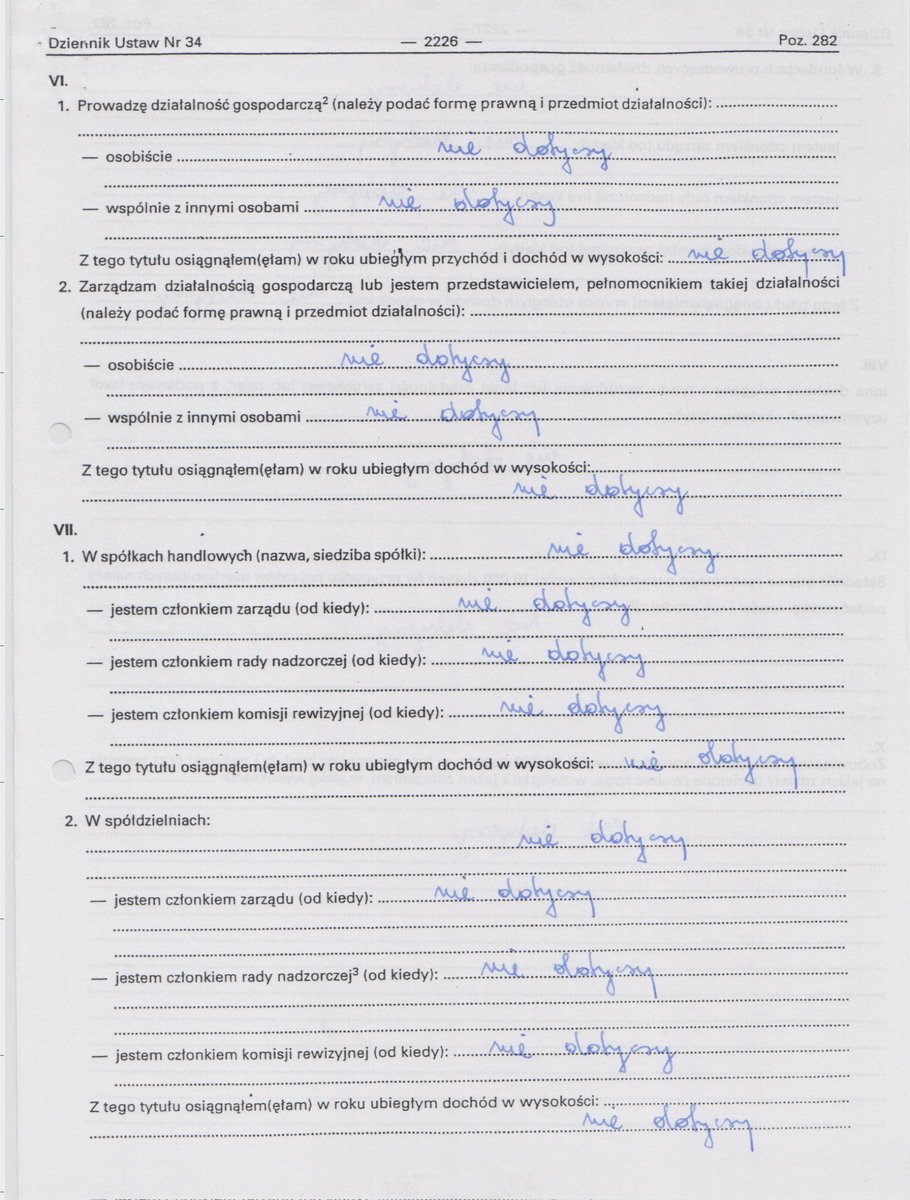 Dziennik Ustaw Nr 34 — 2226 — Poz. 282
VI.
1. Prowadzę działalność gospodarczą² (należy podać formę prawną i przedmiot działalności):
— osobiście nie dotyczy
— wspólnie z innymi osobami nie dotyczy
Z tego tytułu osiągnąłem(ęłam) w roku ubiegłym przychód i dochód w wysokości: nie dotyczy
2. Zarządzam działalnością gospodarczą lub jestem przedstawicielem, pełnomocnikiem takiej działalności
(należy podać formę prawną i przedmiot działalności):
— osobiście nie dotyczy
— wspólnie z innymi osobami nie dotyczy
Z tego tytułu osiągnąłem(ęłam) w roku ubiegłym dochód w wysokości:
nie dotyczy
VII.
1. W spółkach handlowych (nazwa, siedziba spółki): nie dotyczy
— jestem członkiem zarządu (od kiedy): nie dotyczy
— jestem członkiem rady nadzorczej (od kiedy): nie dotyczy
— jestem członkiem komisji rewizyjnej (od kiedy): nie dotyczy
Z tego tytułu osiągnąłem(ęłam) w roku ubiegłym dochód w wysokości: nie dotyczy
2. W spółdzielniach:
nie dotyczy
— jestem członkiem zarządu (od kiedy): nie dotyczy
— jestem członkiem rady nadzorczej³ (od kiedy): nie dotyczy
— jestem członkiem komisji rewizyjnej (od kiedy): nie dotyczy
Z tego tytułu osiągnąłem(ęłam) w roku ubiegłym dochód w wysokości:
nie dotyczy